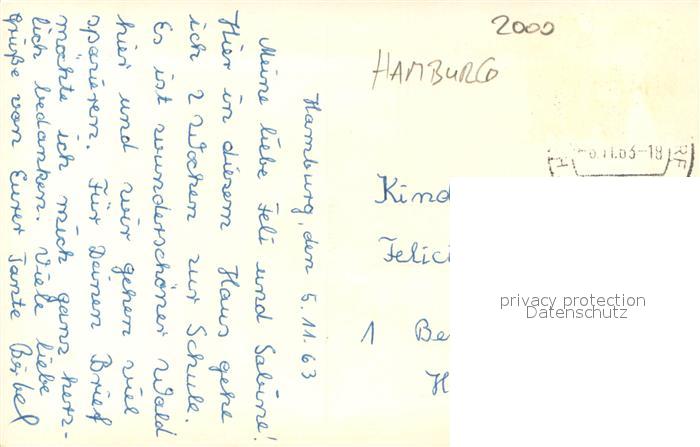 2000
HAMBURG
Hamburg, den 5.11.63
Meine liebe Feli und Sabine!
Hier in diesem Haus gehe
ich 2 Wochen zur Schule.
Es ist wunderschöner Wald
hier und wir gehen viel
spazieren. Für Deinen Brief
möchte ich mich ganz herz-
lich bedanken. Viele liebe
Grüße von Eurer Tante Bärbel
-6.11.63-18
Kind
Felici
1 Be
H
privacy protection
Datenschutz